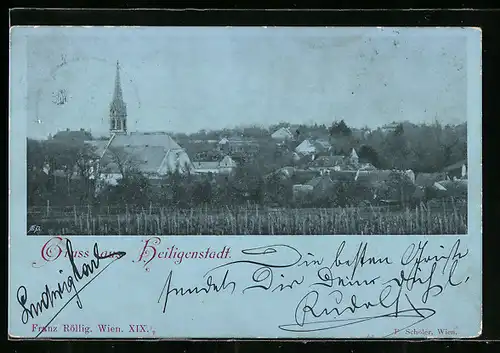 Gruss aus Heiligenstadt.
Die besten Grüsse
sendet Dir Dein
Rudolf
Franz Röllig. Wien. XIX.
P. Schöler, Wien.